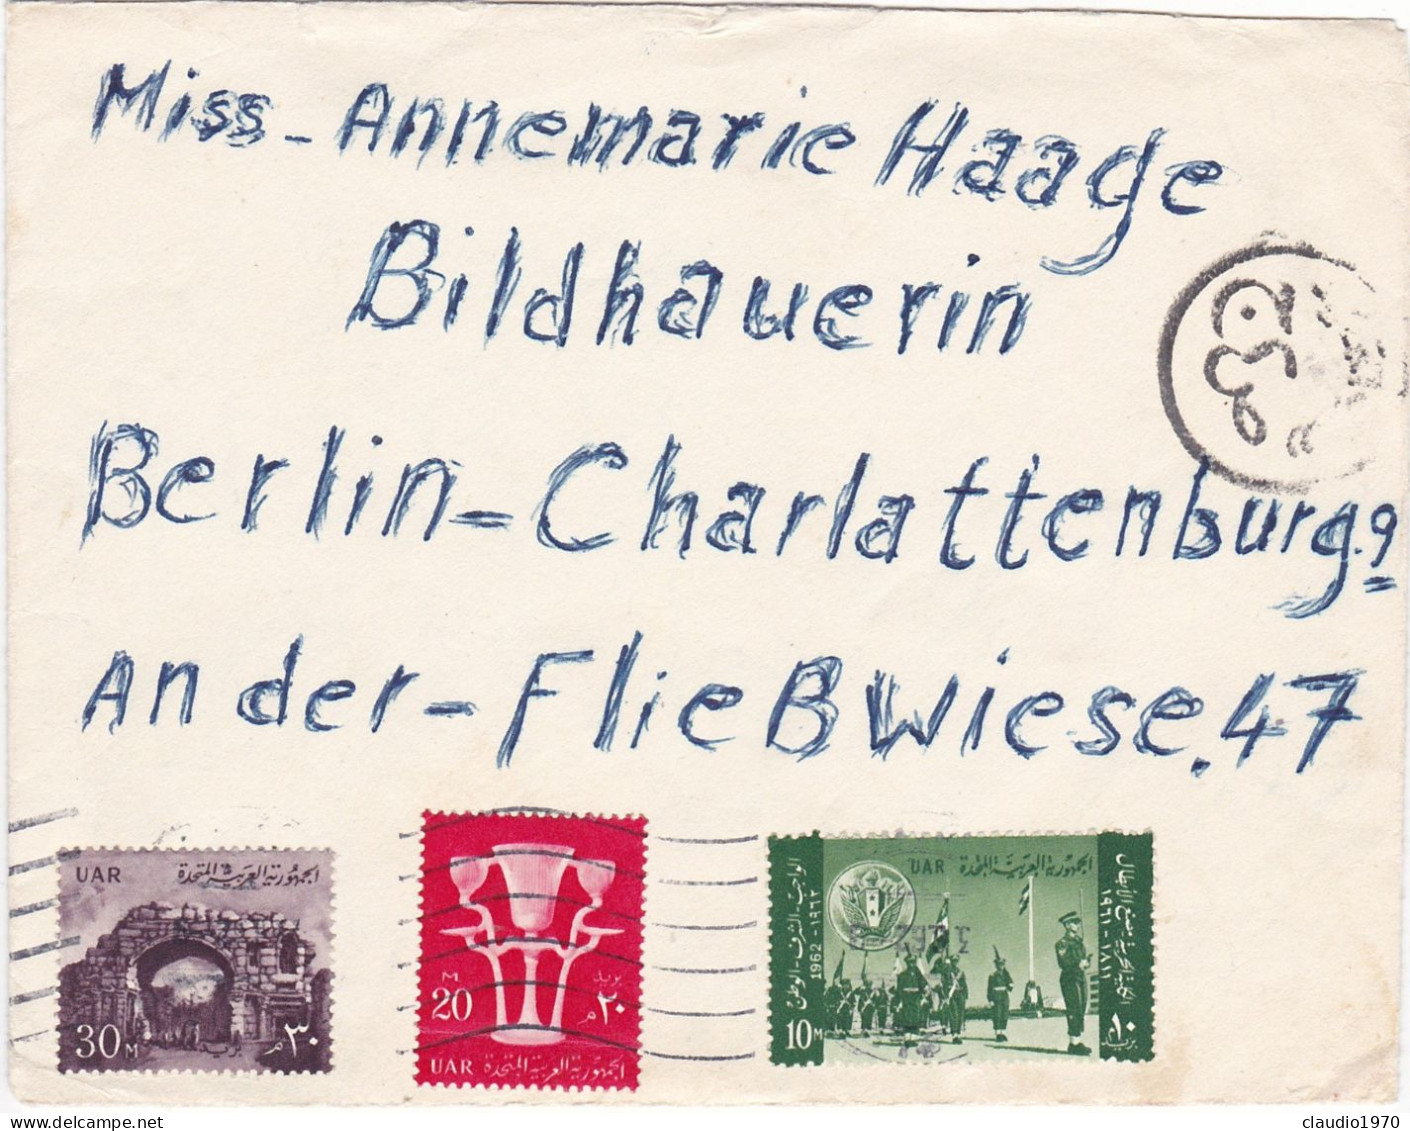 Miss - Annemarie Haage
Bildhauerin
Berlin - Charlattenburg.9
An der - FlieBwiese.47
UAR الجمهورية العربية المتحدة
30 M ٣٠ م بريد
M 20 بريد ٢٠ م
UAR الجمهورية العربية المتحدة
UAR الجمهورية العربية المتحدة
الواجب - الشرف - الوطن
1962 - ١٩٦٢
١٨١١ - ١٩٦١
10 M ١٠ م بريد
claudio1970